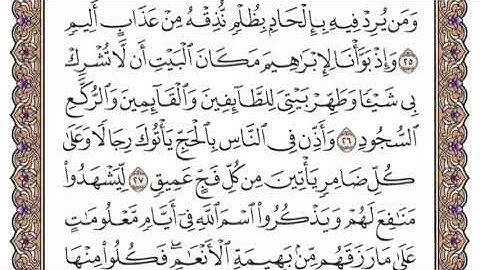 وَمَن يُرِدْ فِيهِ بِإِلْحَادٍۭ بِظُلْمٍ نُّذِقْهُ مِنْ عَذَابٍ أَلِيمٍ
٢٥ وَإِذْ بَوَّأْنَا لِإِبْرَٰهِيمَ مَكَانَ ٱلْبَيْتِ أَن لَّا تُشْرِكْ
بِى شَيْـًٔا وَطَهِّرْ بَيْتِىَ لِلطَّآئِفِينَ وَٱلْقَآئِمِينَ وَٱلرُّكَّعِ
ٱلسُّجُودِ ٢٦ وَأَذِّن فِى ٱلنَّاسِ بِٱلْحَجِّ يَأْتُوكَ رِجَالًا وَعَلَىٰ
كُلِّ ضَامِرٍ يَأْتِينَ مِن كُلِّ فَجٍّ عَمِيقٍ ٢٧ لِّيَشْهَدُوا۟
مَنَٰفِعَ لَهُمْ وَيَذْكُرُوا۟ ٱسْمَ ٱللَّهِ فِىٓ أَيَّامٍ مَّعْلُومَٰتٍ
عَلَىٰ مَا رَزَقَهُم مِّنۢ بَهِيمَةِ ٱلْأَنْعَٰمِ ۖ فَكُلُوا۟ مِنْهَا